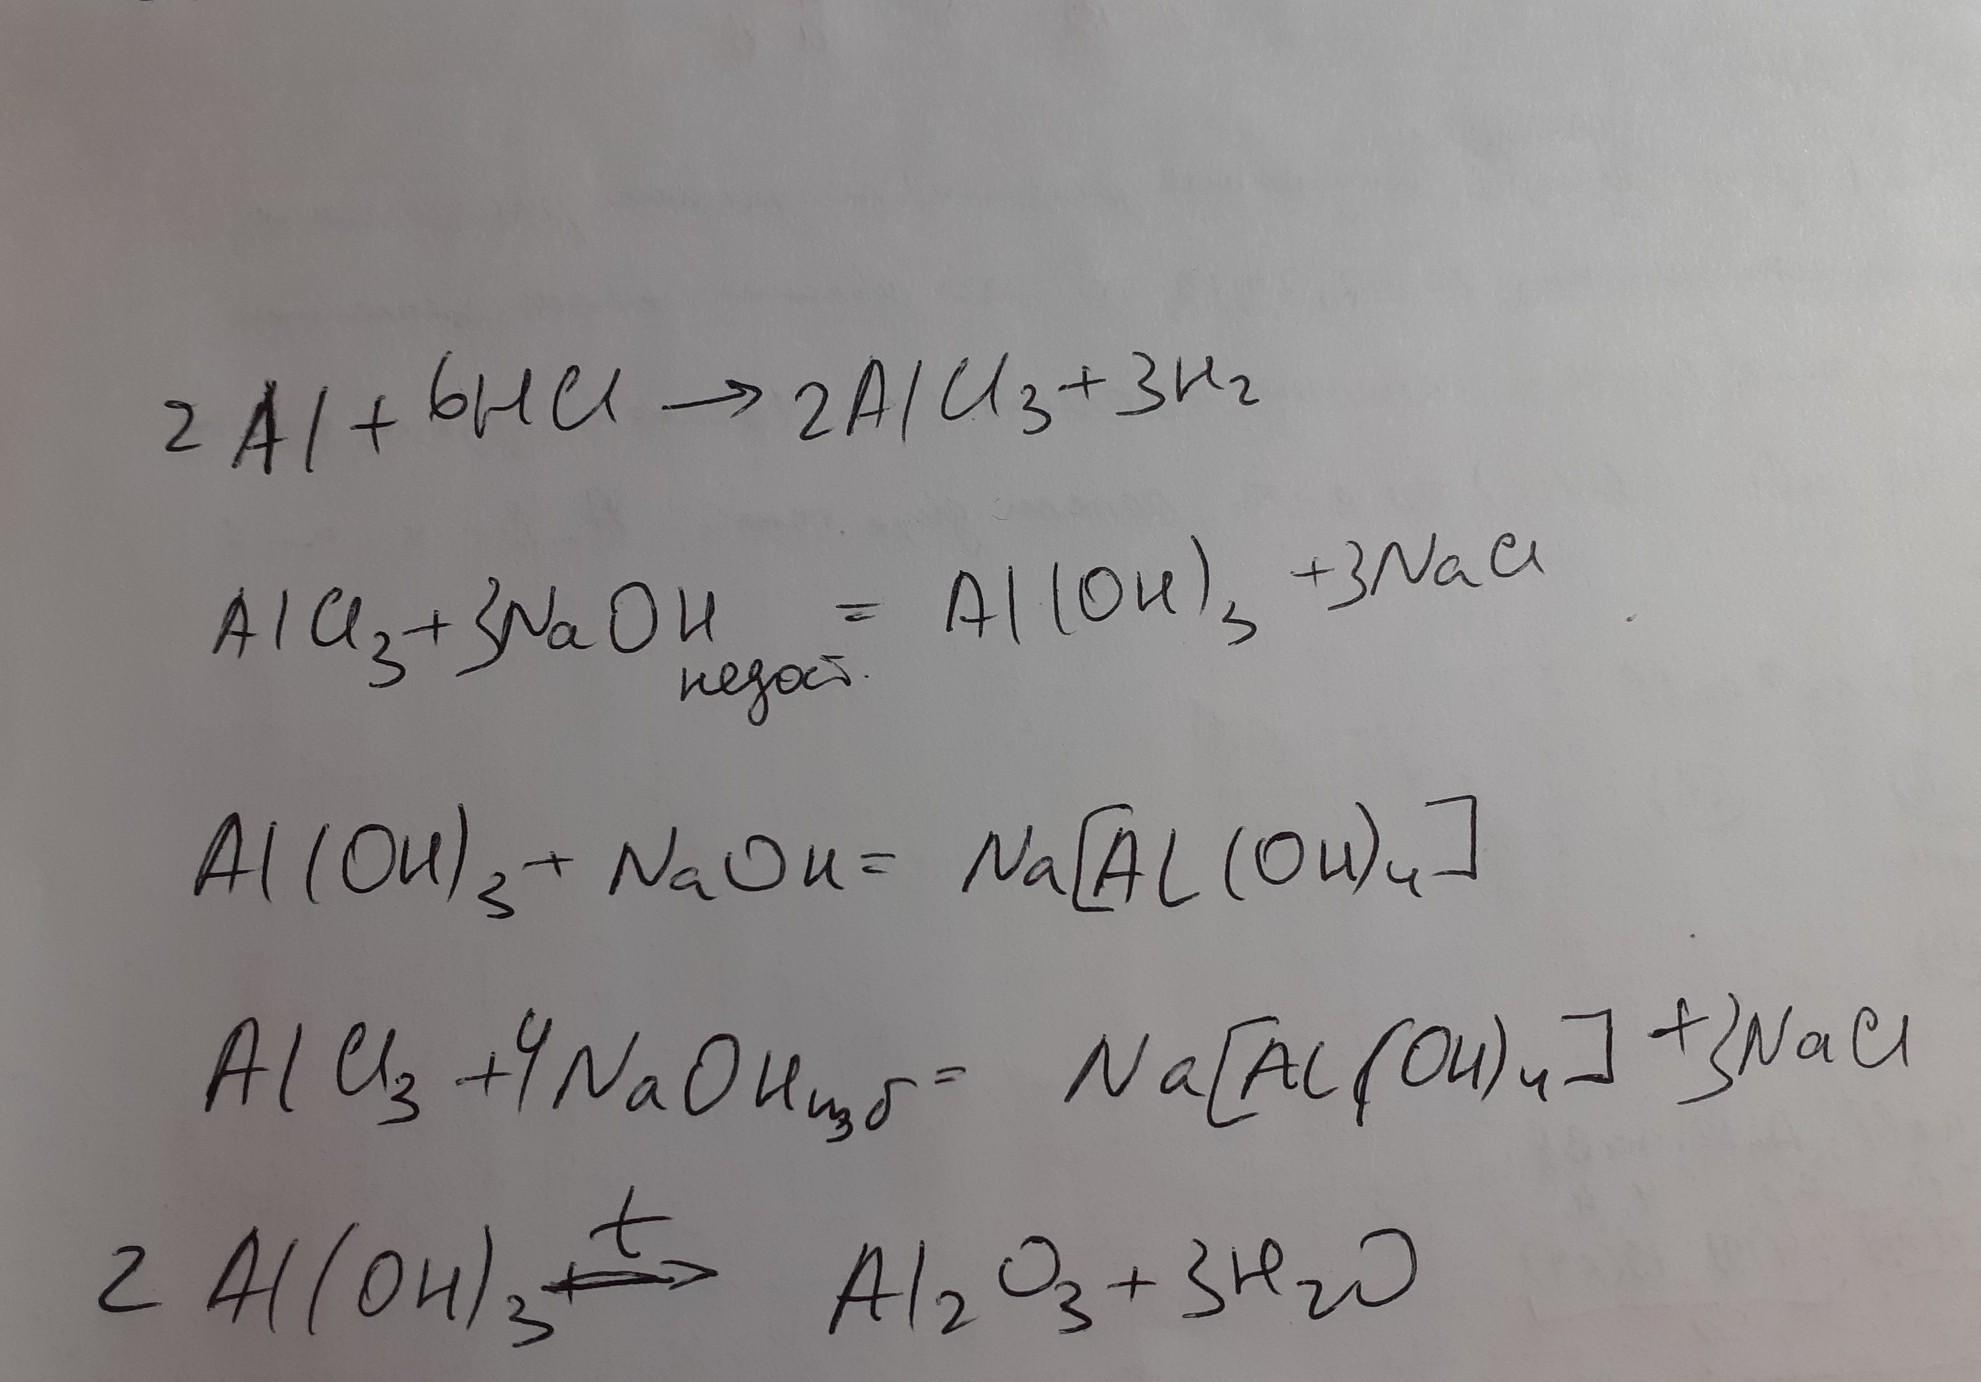 2Al + 6HCl → 2AlCl₃ + 3H₂
AlCl₃ + 3NaOH недост. = Al(OH)₃ + 3NaCl
Al(OH)₃ + NaOH = Na[Al(OH)₄]
AlCl₃ + 4NaOH изб = Na[Al(OH)₄] + 3NaCl
2Al(OH)₃ t→ Al₂O₃ + 3H₂O